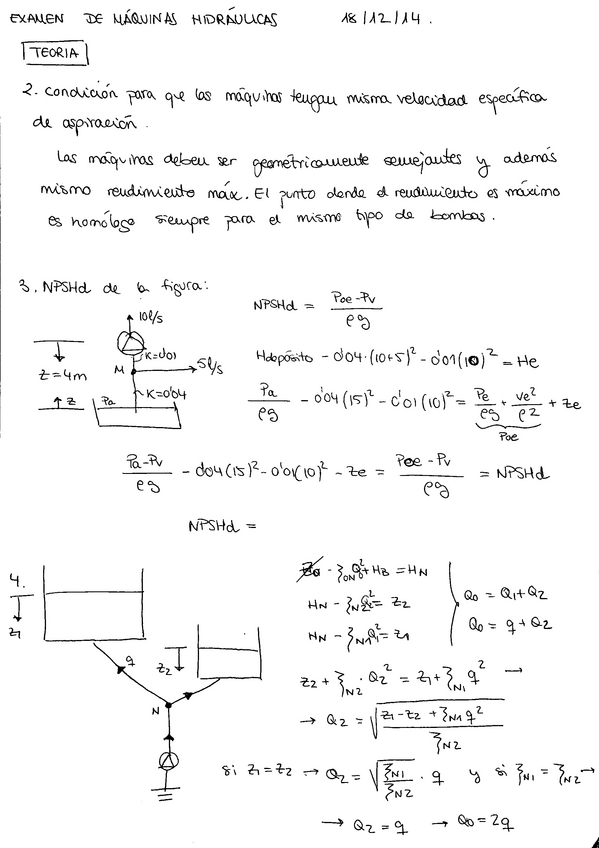 EXAMEN DE MÁQUINAS HIDRÁULICAS 18/12/14.
TEORIA
2. Condición para que las máquinas tengan misma velocidad específica
de aspiración.
Las máquinas deben ser geométricamente semejantes y además
mismo rendimiento máx. El punto donde el rendimiento es máximo
es homólogo siempre para el mismo tipo de bombas.
3. NPSHd de la figura:
10l/s
K=0'01
M
5l/s
z=4m
K=0'04
z
Pa
NPSHd = (Poe-Pv)/(ρg)
Hdepósito - 0'04·(10+5)² - 0'01(10)² = He
Pa/(ρg) - 0'04(15)² - 0'01(10)² = Pe/(ρg) + ve²/(ρ2) + ze
Poe
(Pa-Pv)/(ρg) - 0'04(15)² - 0'01(10)² - ze = (Poe-Pv)/(ρg) = NPSHd
NPSHd =
4.
z1
q
z2
N
- ξ0N Q0² + HB = HN
HN - ξN2 Q2² = z2
HN - ξN1 Q1² = z1
Q0 = Q1+Q2
Q0 = q+Q2
z2 + ξN2 · Q2² = z1 + ξN1 q² →
→ Q2 = √((z1-z2 + ξN1 q²)/ξN2)
si z1=z2 → Q2 = √(ξN1/ξN2) · q y si ξN1 = ξN2 →
→ Q2 = q → Q0 = 2q